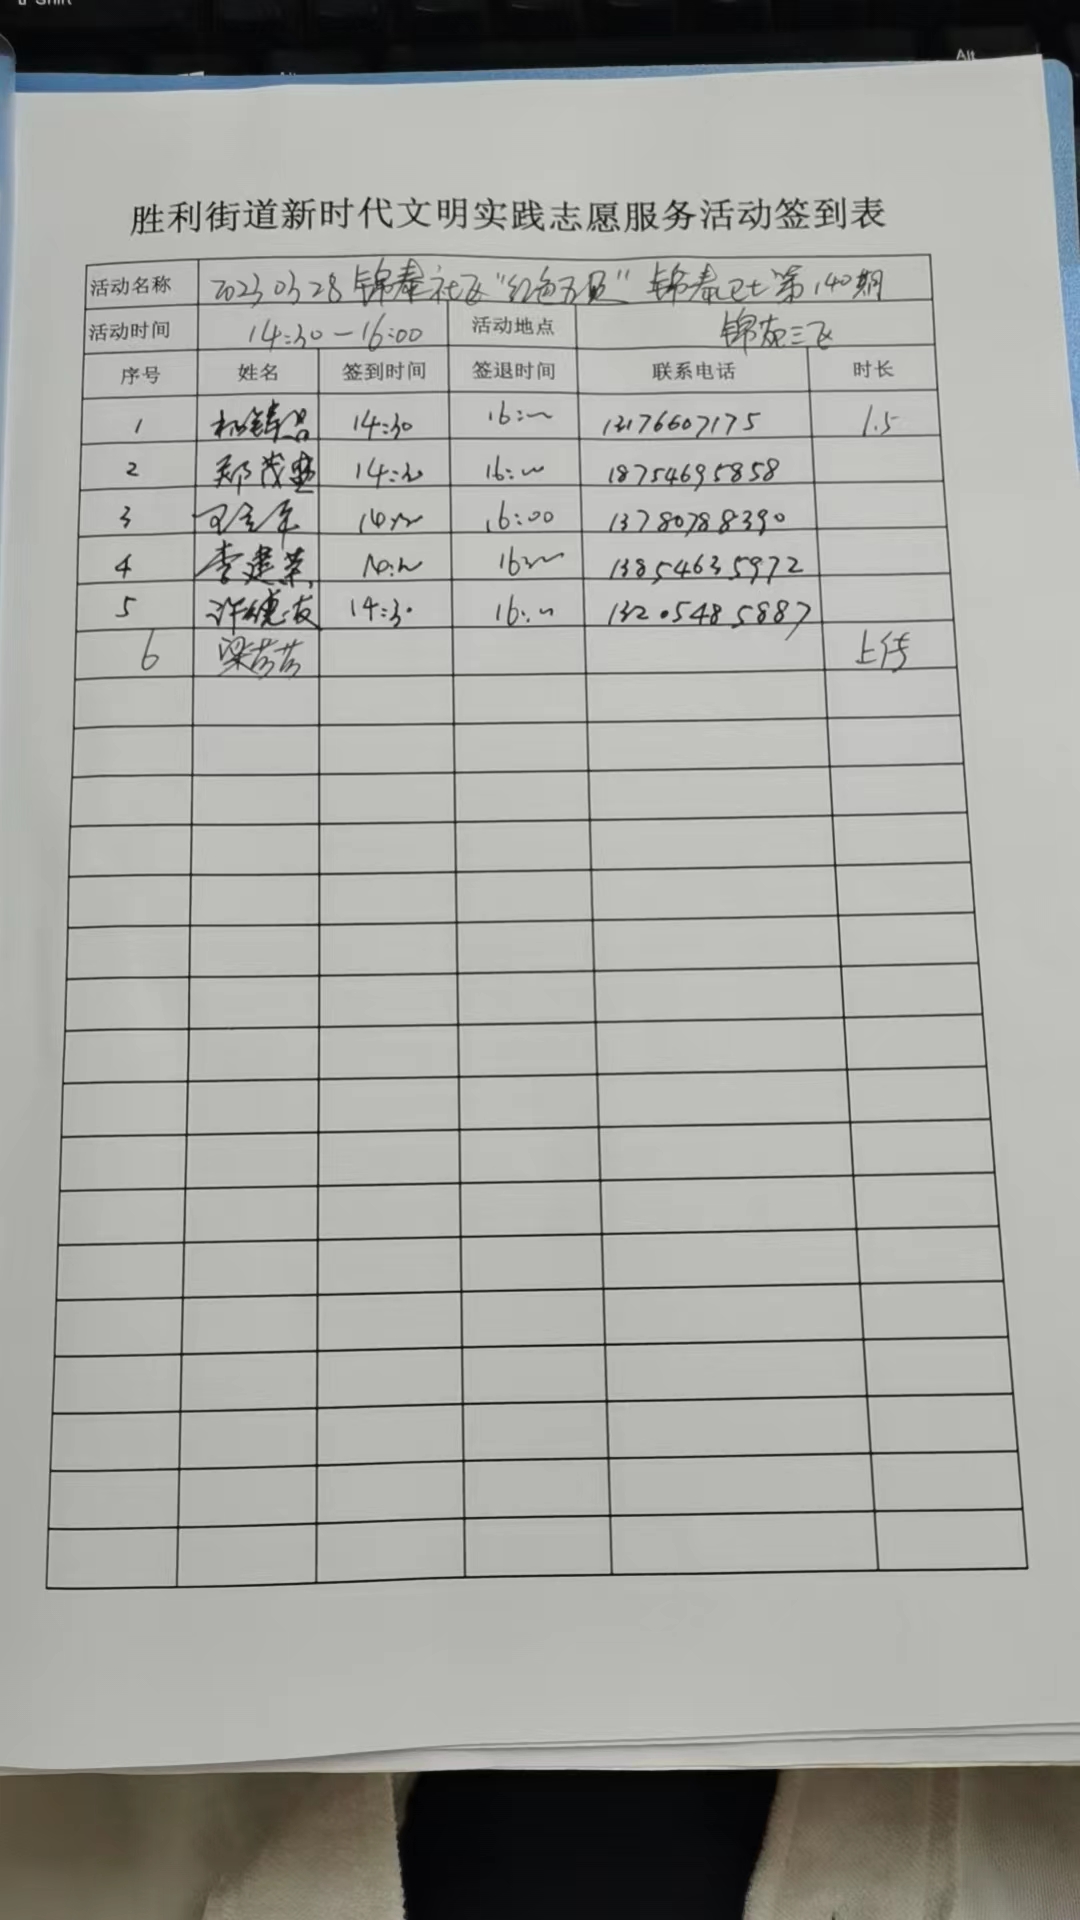 Shift
Alt
胜利街道新时代文明实践志愿服务活动签到表
活动名称 20230328锦泰社区"红色方员"锦泰卫士第140期
活动时间 14:30—16:00 活动地点 锦苑三区
序号 姓名 签到时间 签退时间 联系电话 时长
1 14:30 16:00 13176607175 1.5
2 郑茂 14:30 16:00 18754695858
3 16:00 13780788390
4 李建荣 16:00 13854635972
5 许德友 14:30 16:00 13205485887
6 梁芳芳 上传